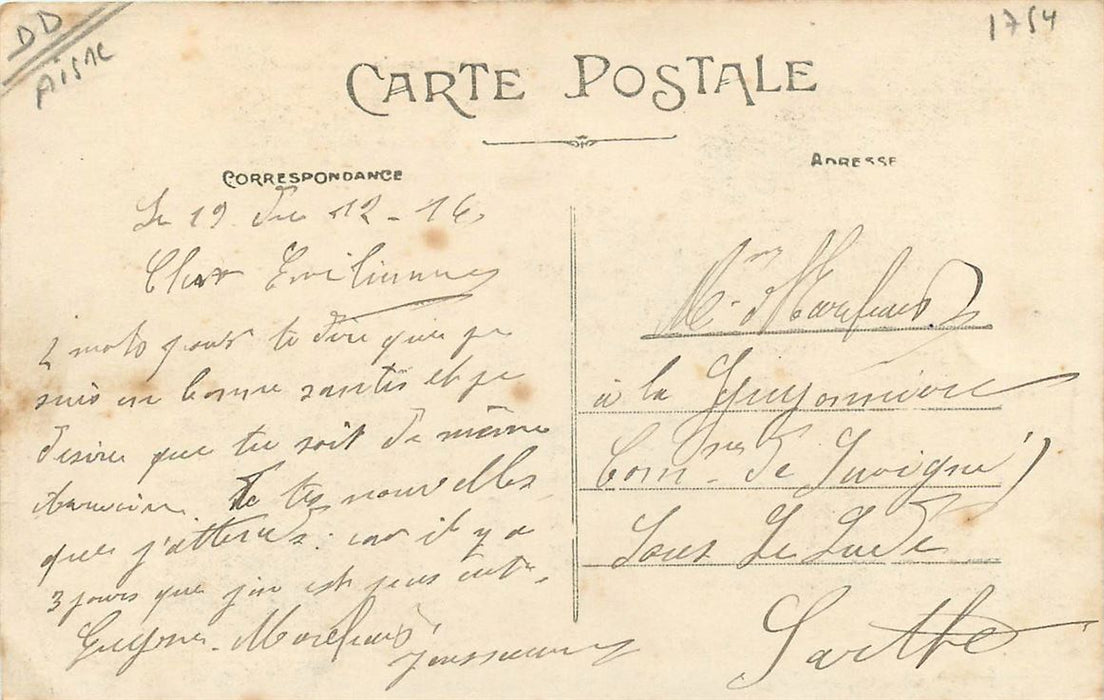 DD
Aisne
1754
CARTE POSTALE
CORRESPONDANCE
ADRESSE
Le 19 Du 12 - 16
Cher
2 mots pour te dire que je
suis en bonne santés et je
désire que tu soit de même
tes nouvelles
que j'attends : car il y a
3 jours que j'en est pas
Mme
à la Guyonnière
Comne de Savigné
Sous Le Lude
Sarthe